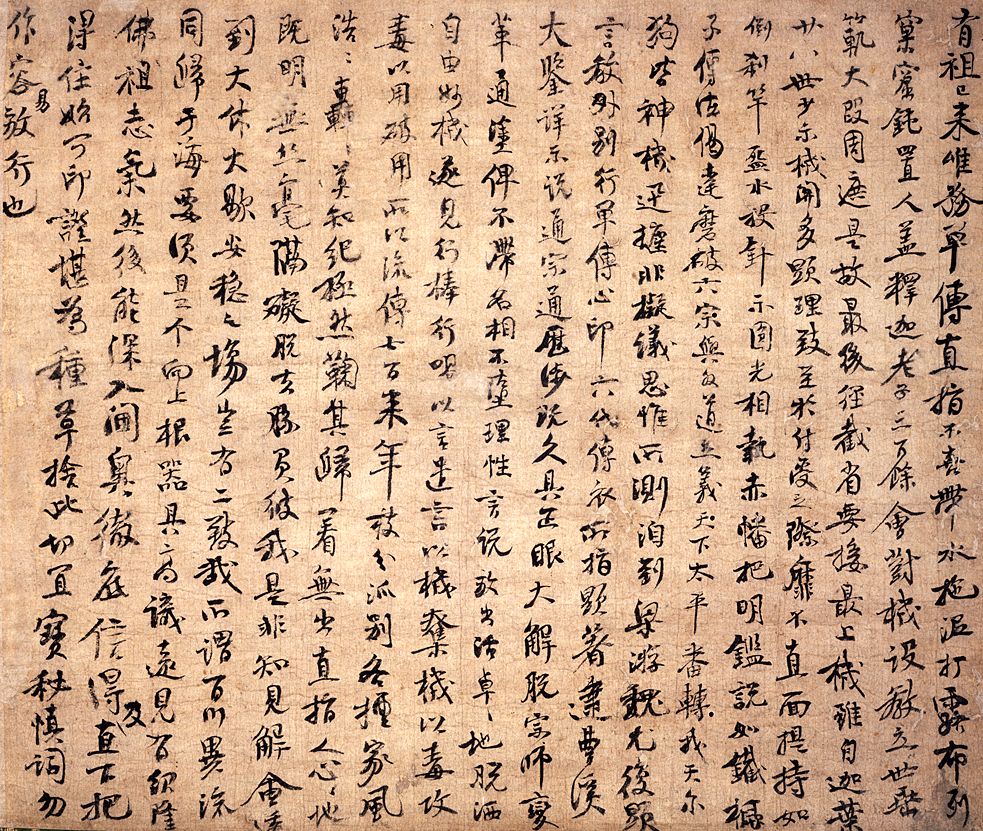 有祖已来唯務單傳直指不喜帶水拖泥打露布列
窠窟鈍置人蓋釋迦老子三百餘會對機設教立世垂
範大段周遮是故最後徑截省要接最上機雖自迦葉
廿八世少示機關多顯理致至於付受之際靡不直面提持如
倒刹竿盋水投針示圓光相執赤幡把明鑑說如鐵橛
子傳法偈達磨破六宗與外道立義天下太平番轉我天尔
狗皆神機迅捷非擬議思惟所測洎到梁游魏尤復顯
言教外別行單傳心印六代傳衣所指顯著逮曹溪
大鑒詳示說通宗通歷涉既久具正眼大解脫宗師變
革通塗俾不滯名相不墮理性言說放出活卓〻地脫洒
自由妙機遂見行棒行喝以言遣言以機奪機以毒攻
毒以用破用所以流傳七百來年枝分派別各擅家風
浩〻轟〻莫知紀極然鞠其歸著無出直指人心〻地
既明無丝毫隔礙脫去勝負彼我是非知見解會透
到大休大歇安穩之場豈有二致哉所謂百川異流
同歸于海要須是个向上根器具高識遠見有紹隆
佛祖志氣然後能深入閫奧徹底信得及直下把
得住始可印證堪為種草捨此切宜寶秘慎詞勿
作容易放行也